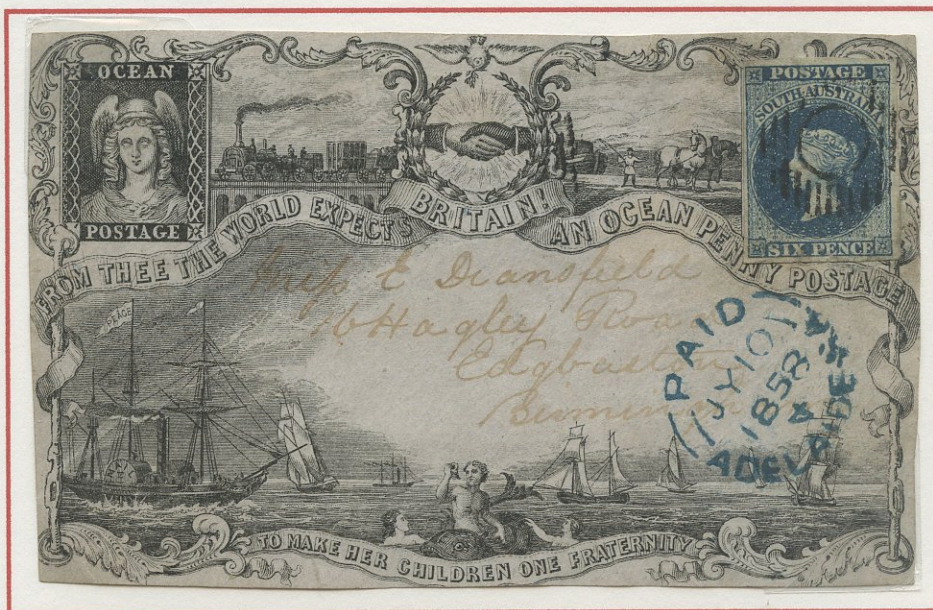 OCEAN
POSTAGE
POSTAGE
SOUTH AUSTRALIA
SIX PENCE
FROM THEE THE WORLD EXPECTS BRITAIN! AN OCEAN PENNY POSTAGE
PEACE
Miss E Dransfield
16 Hagley Road
Edgbaston
PAID
JY 10
1858
ADELAIDE S.A
TO MAKE HER CHILDREN ONE FRATERNITY